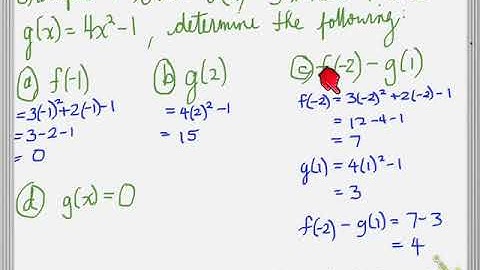 g(x) = 4x² - 1, determine the following:
(a) f(-1)
= 3(-1)² + 2(-1) - 1
= 3 - 2 - 1
= 0
(b) g(2)
= 4(2)² - 1
= 15
(c) f(-2) - g(1)
f(-2) = 3(-2)² + 2(-2) - 1
= 12 - 4 - 1
= 7
g(1) = 4(1)² - 1
= 3
f(-2) - g(1) = 7 - 3
= 4
(d) g(x) = 0